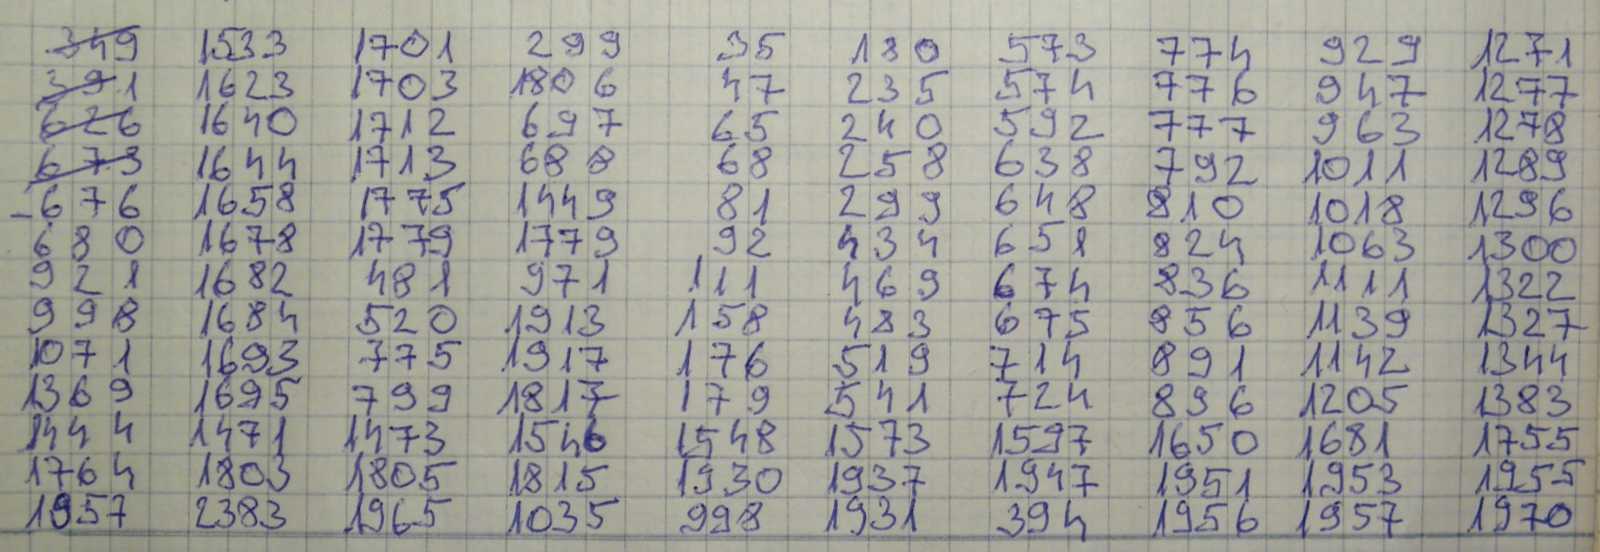 349 1533 1701 299 35 180 573 774 929 1271
391 1623 1703 1806 47 235 574 776 947 1277
626 1640 1712 697 65 240 592 777 963 1278
673 1644 1713 688 68 258 638 792 1011 1289
-676 1658 1775 1449 81 299 648 810 1018 1296
680 1678 1779 1779 92 434 651 824 1063 1300
921 1682 481 971 111 469 674 836 1111 1322
998 1684 520 1913 158 483 675 856 1139 1327
1071 1693 775 1917 176 519 714 891 1142 1344
1369 1695 799 1817 179 541 724 896 1205 1383
1444 1471 1473 1546 1548 1573 1597 1650 1681 1755
1764 1803 1805 1815 1930 1937 1947 1951 1953 1955
1957 2383 1965 1035 998 1931 394 1956 1957 1970